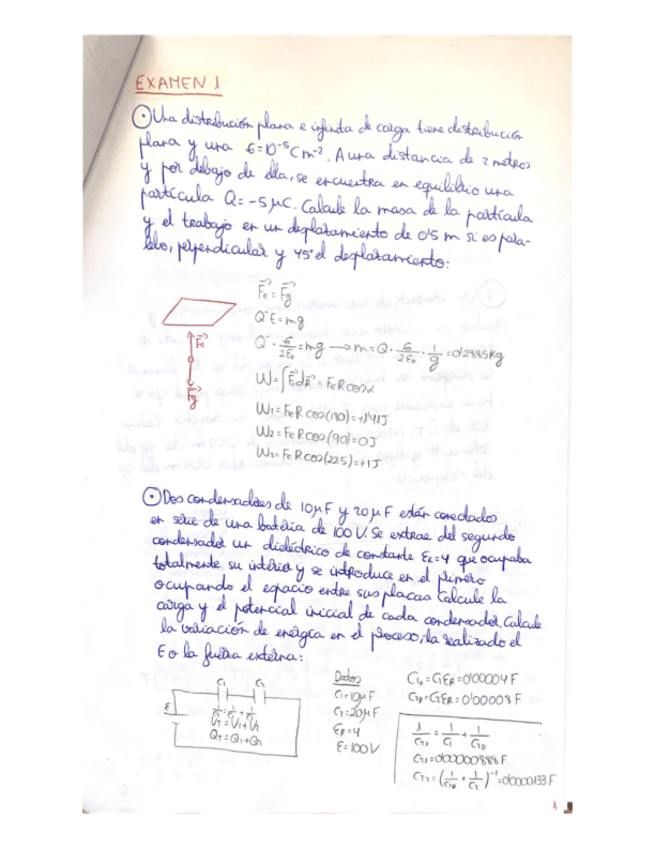 EXAMEN 1
Una distribución plana e infinita de carga tiene distribución
plana y una σ=10⁻⁵Cm⁻². A una distancia de 2 metros
y por debajo de ella, se encuentra en equilibrio una
partícula Q=-5μC. Calcule la masa de la partícula
y el trabajo en un desplazamiento de 0'5 m si es para-
lelo, perpendicular y 45º el desplazamiento:
Fe = Fg
Q·E=mg
Q·σ/2ε₀=mg → m=Q·σ/2ε₀·1/g=0'2885kg
W=∫FedR=FeRcosα
Fe
Fg
W₁=FeRcos(180)=+1'41J
W₂=FeRcos(90)=0J
W₃=FeRcos(225)=+1J
Dos condensadores de 10μF y 20μF están conectados
en serie de una batería de 100V. Se extrae del segundo
condensador un dieléctrico de constante εr=4 que ocupaba
totalmente su interior y se introduce en el primero
ocupando el espacio entre sus placas. Calcule la
carga y el potencial inicial de cada condensador. Calcule
la variación de energía en el proceso, la realizado el
E o la fuerza externa:
C₁ C₂
ε
VT=V₁+V₂
QT=Q₁+Q₂
Datos
C₁=10μF
C₂=20μF
εR=4
E=100V
C₁D=C₁εR=0'00004F
C₂D=C₂εR=0'00008F
1/CT₁=1/C₁+1/C₂D
CT₁=0'00000888F
CT₂=(1/C₁D+1/C₂)⁻¹=0'0000133F
1